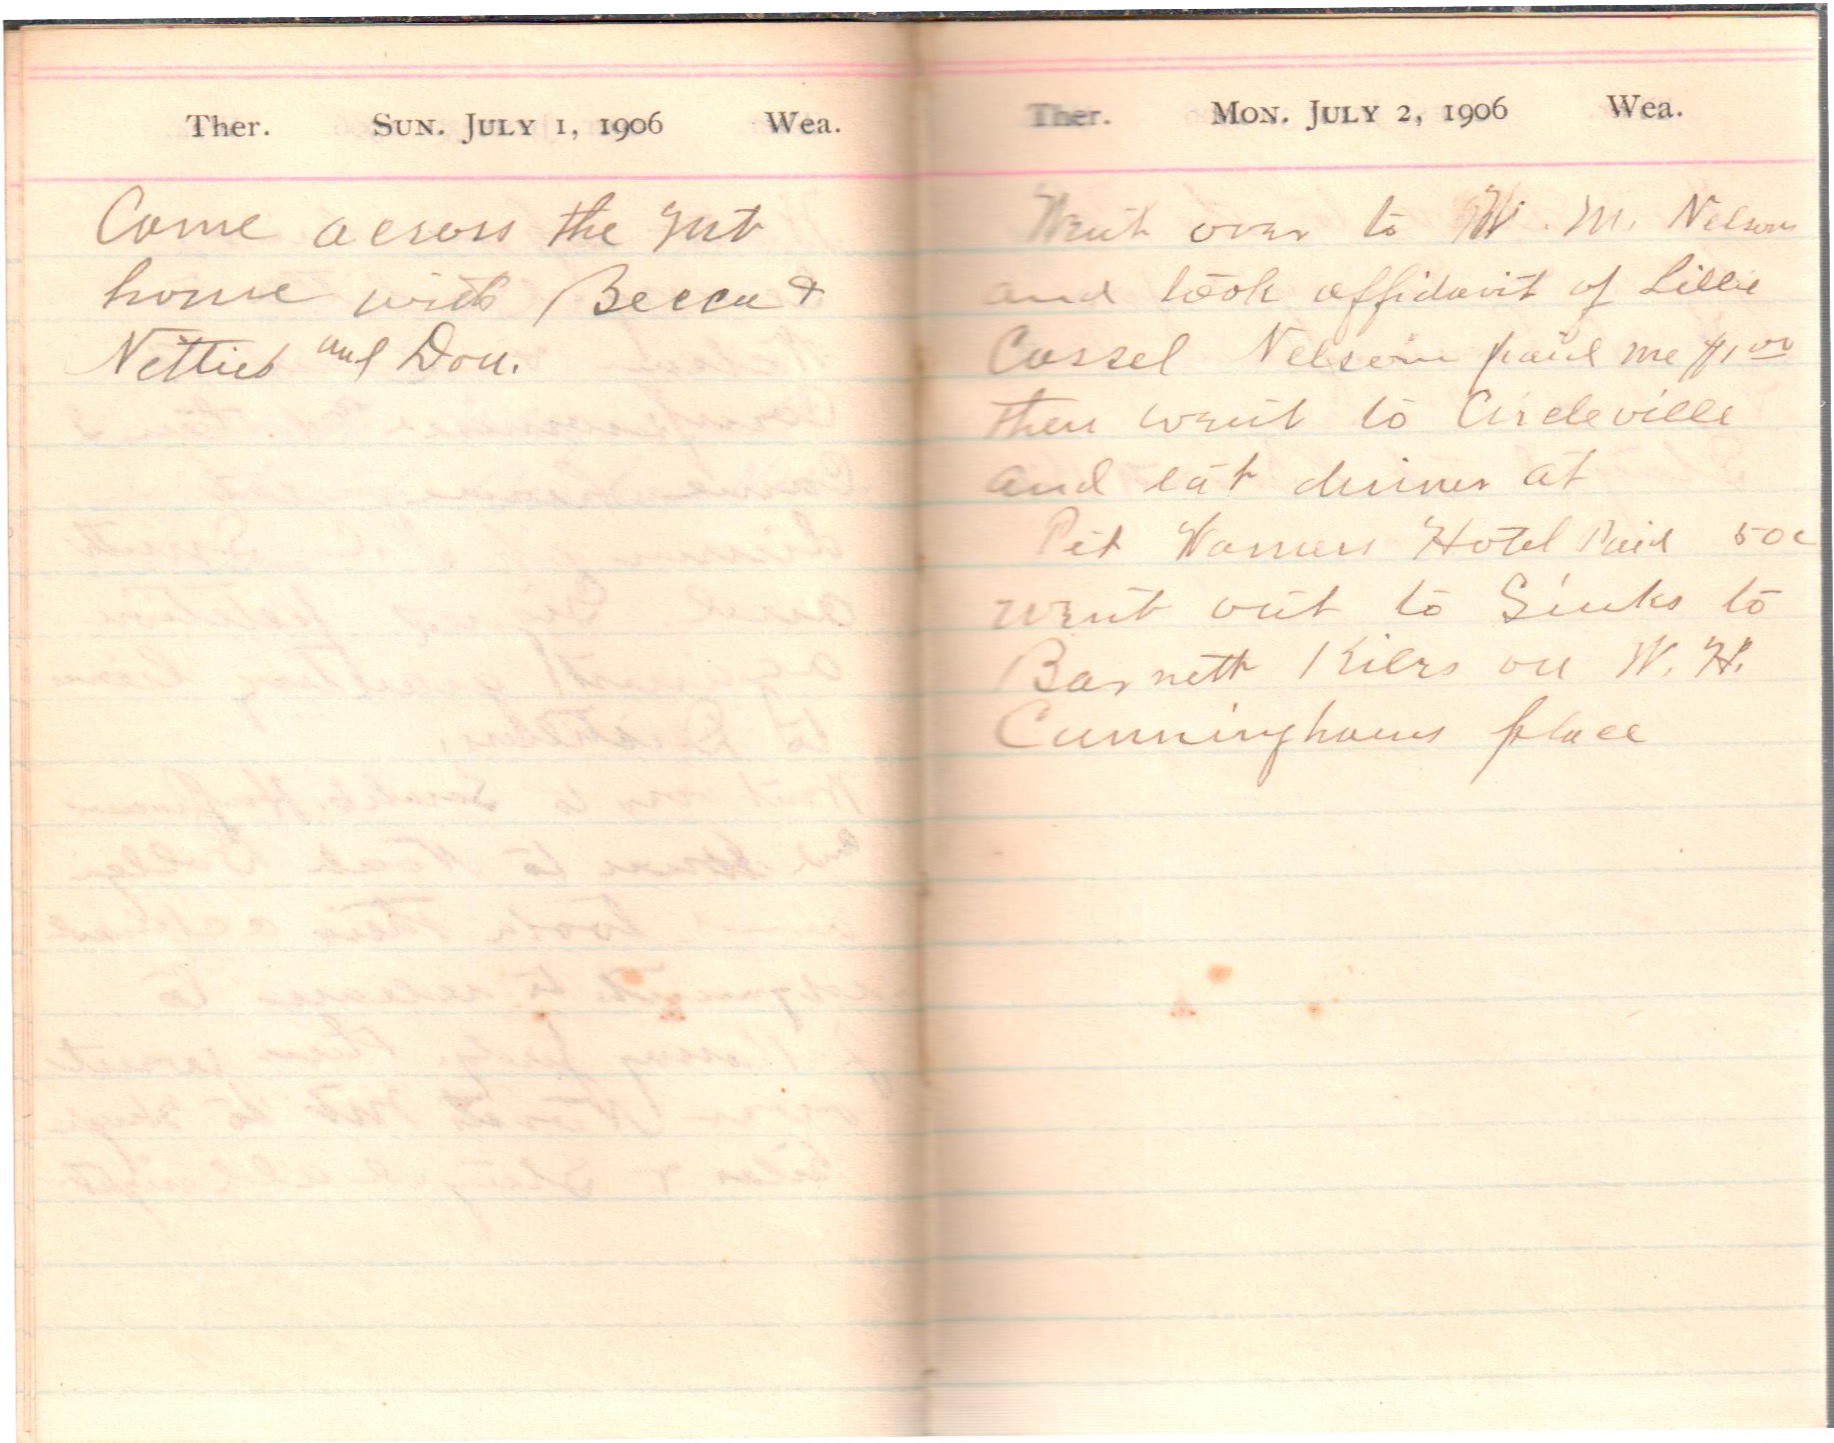 Ther. SUN. JULY 1, 1906 Wea.
Come across the Mt
home with Becca &
Netties and Don.
Ther. MON. JULY 2, 1906 Wea.
Went over to W. M. Nelsons
and took affidavit of Lillie
Cassel Nelson paid me $1 00
then went to Circleville
and eat dinner at
Pet Warners Hotel Paid 50c
went out to Sinks to
Barnett Kilers on W. H.
Cunninghams place